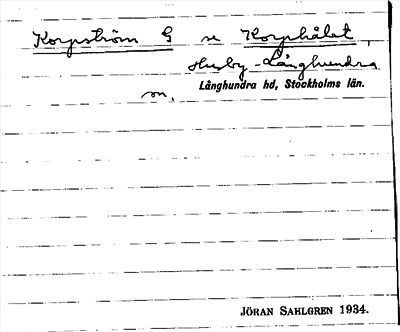 Korpström G se Korphålet,
Husby-Långhundra
sn.
Långhundra hd, Stockholms län.
JÖRAN SAHLGREN 1934.